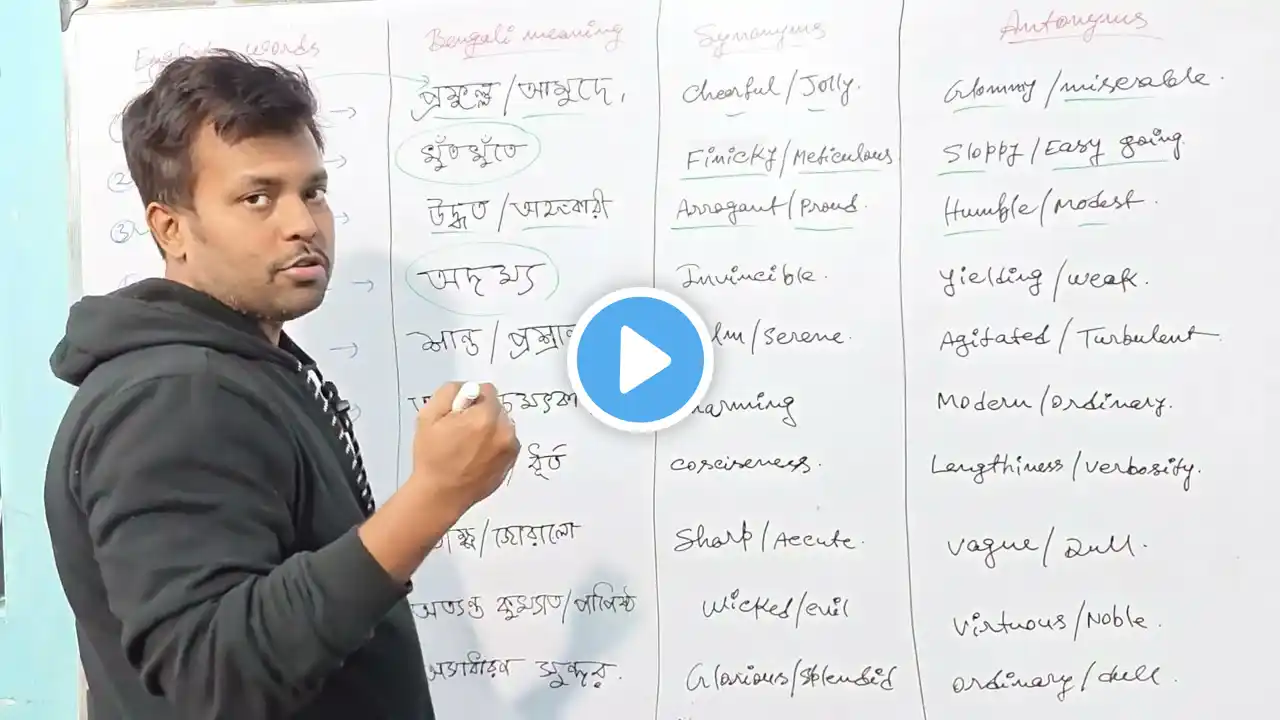 English words Bengali meaning Synonyms Antonyms
প্রফুল্ল / আমুদে, Cheerful / Jolly. Gloomy / miserable.
② খুঁতখুঁতে Finicky / Meticulous Sloppy / Easy going.
③ উদ্ধত / অহংকারী Arrogant / Proud. Humble / Modest.
অদম্য Invincible. Yielding / weak.
শান্ত / Serene. Agitated / Turbulent
Modern / ordinary.
/ ধূর্ত cosciseness. Lengthiness / verbosity.
/ জোরালো Sharp / Accute. Vague / Dull.
অত্যন্ত কুখ্যাত / পাপিষ্ঠ Wicked / evil Virtuous / Noble.
সুন্দর. Glorious / Splendid ordinary / dull.